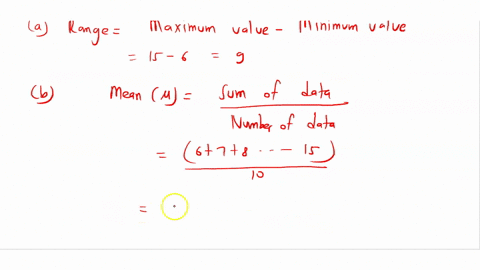 (a) Range = Maximum value - Minimum value
= 15 - 6 = 9
(b) Mean (μ) = Sum of data
Number of data
= (6+7+8 ... - 15)
10
=